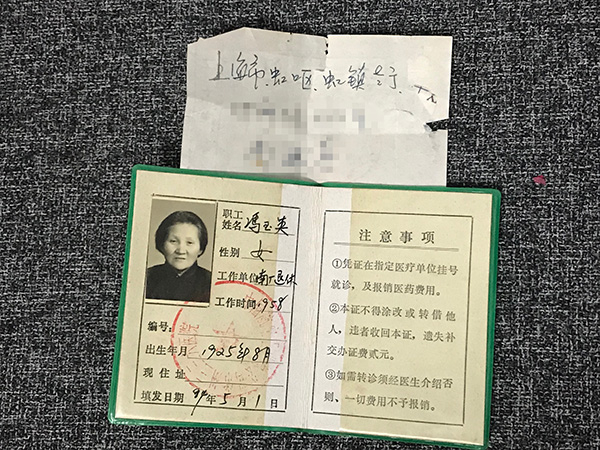 上海市、虹口区、虹鎮老亍
职工
姓名 馮玉英
性别 女
工作单位 退休
工作时间 1958
编号：
出生年月 1925年8月
现住址
填发日期 年5月1日
注意事项
①凭证在指定医疗单位挂号
就诊，及报销医药费用。
②本证不得涂改或转借他
人，违者收回本证，遗失补
交办证费贰元。
③如需转诊须经医生介绍否
则、一切费用不予报销。